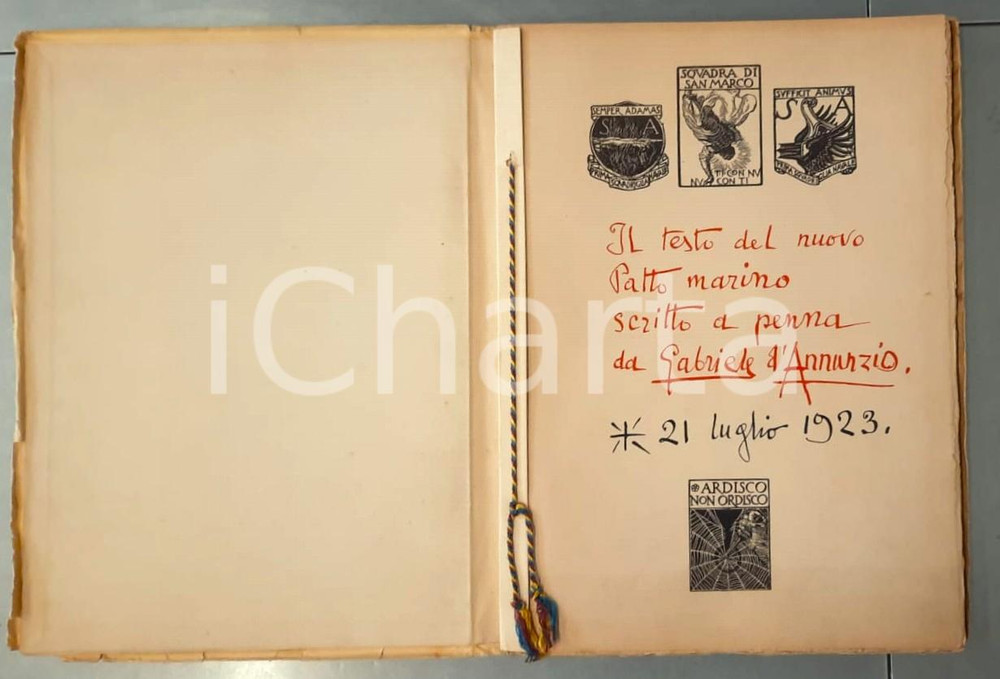 SEMPER ADAMAS
S A
SQVADRA DI
SAN MARCO
TI CON NV
NV CON TI
SVFFICIT ANIMVS
S A
Il testo del nuovo
Patto marino
scritto a penna
da Gabriele d'Annunzio.
21 luglio 1923.
ARDISCO
NON ORDISCO
iCharta